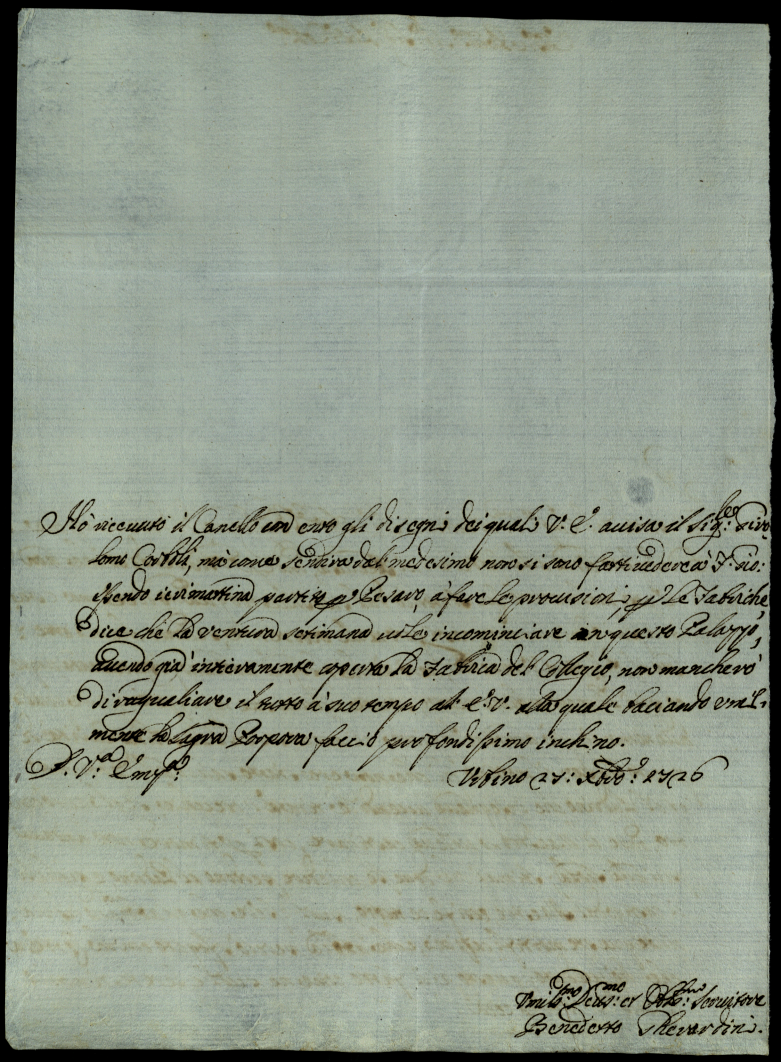 Hò riceuuto il Canello con ento gli disegni dei quali V: E: auisa il Sig:re Giro:
lomo Cortoli, mà come sentirà dal medesimo non si sono fatti uedere à
essendo ieri mattina partito p Pesaro, à fare le procusioni, p le Fabriche,
dice che la ventura settimana uole incominciare in questo Palazzo,
auendo già intieramente coperta la Fabrica del Collegio, non mancherò
di ragualiare il tutto à suo tempo all' E: V: alla quale baciando vmil=
mente la Sagra Porpora faccio profondissimo inchino.
D. V:a Em:za
Vrbino 27: Xbre: 1726
Vmilis:mo Deuo:mo et Obb:mo Seruitore
Benedetto Gherardini.